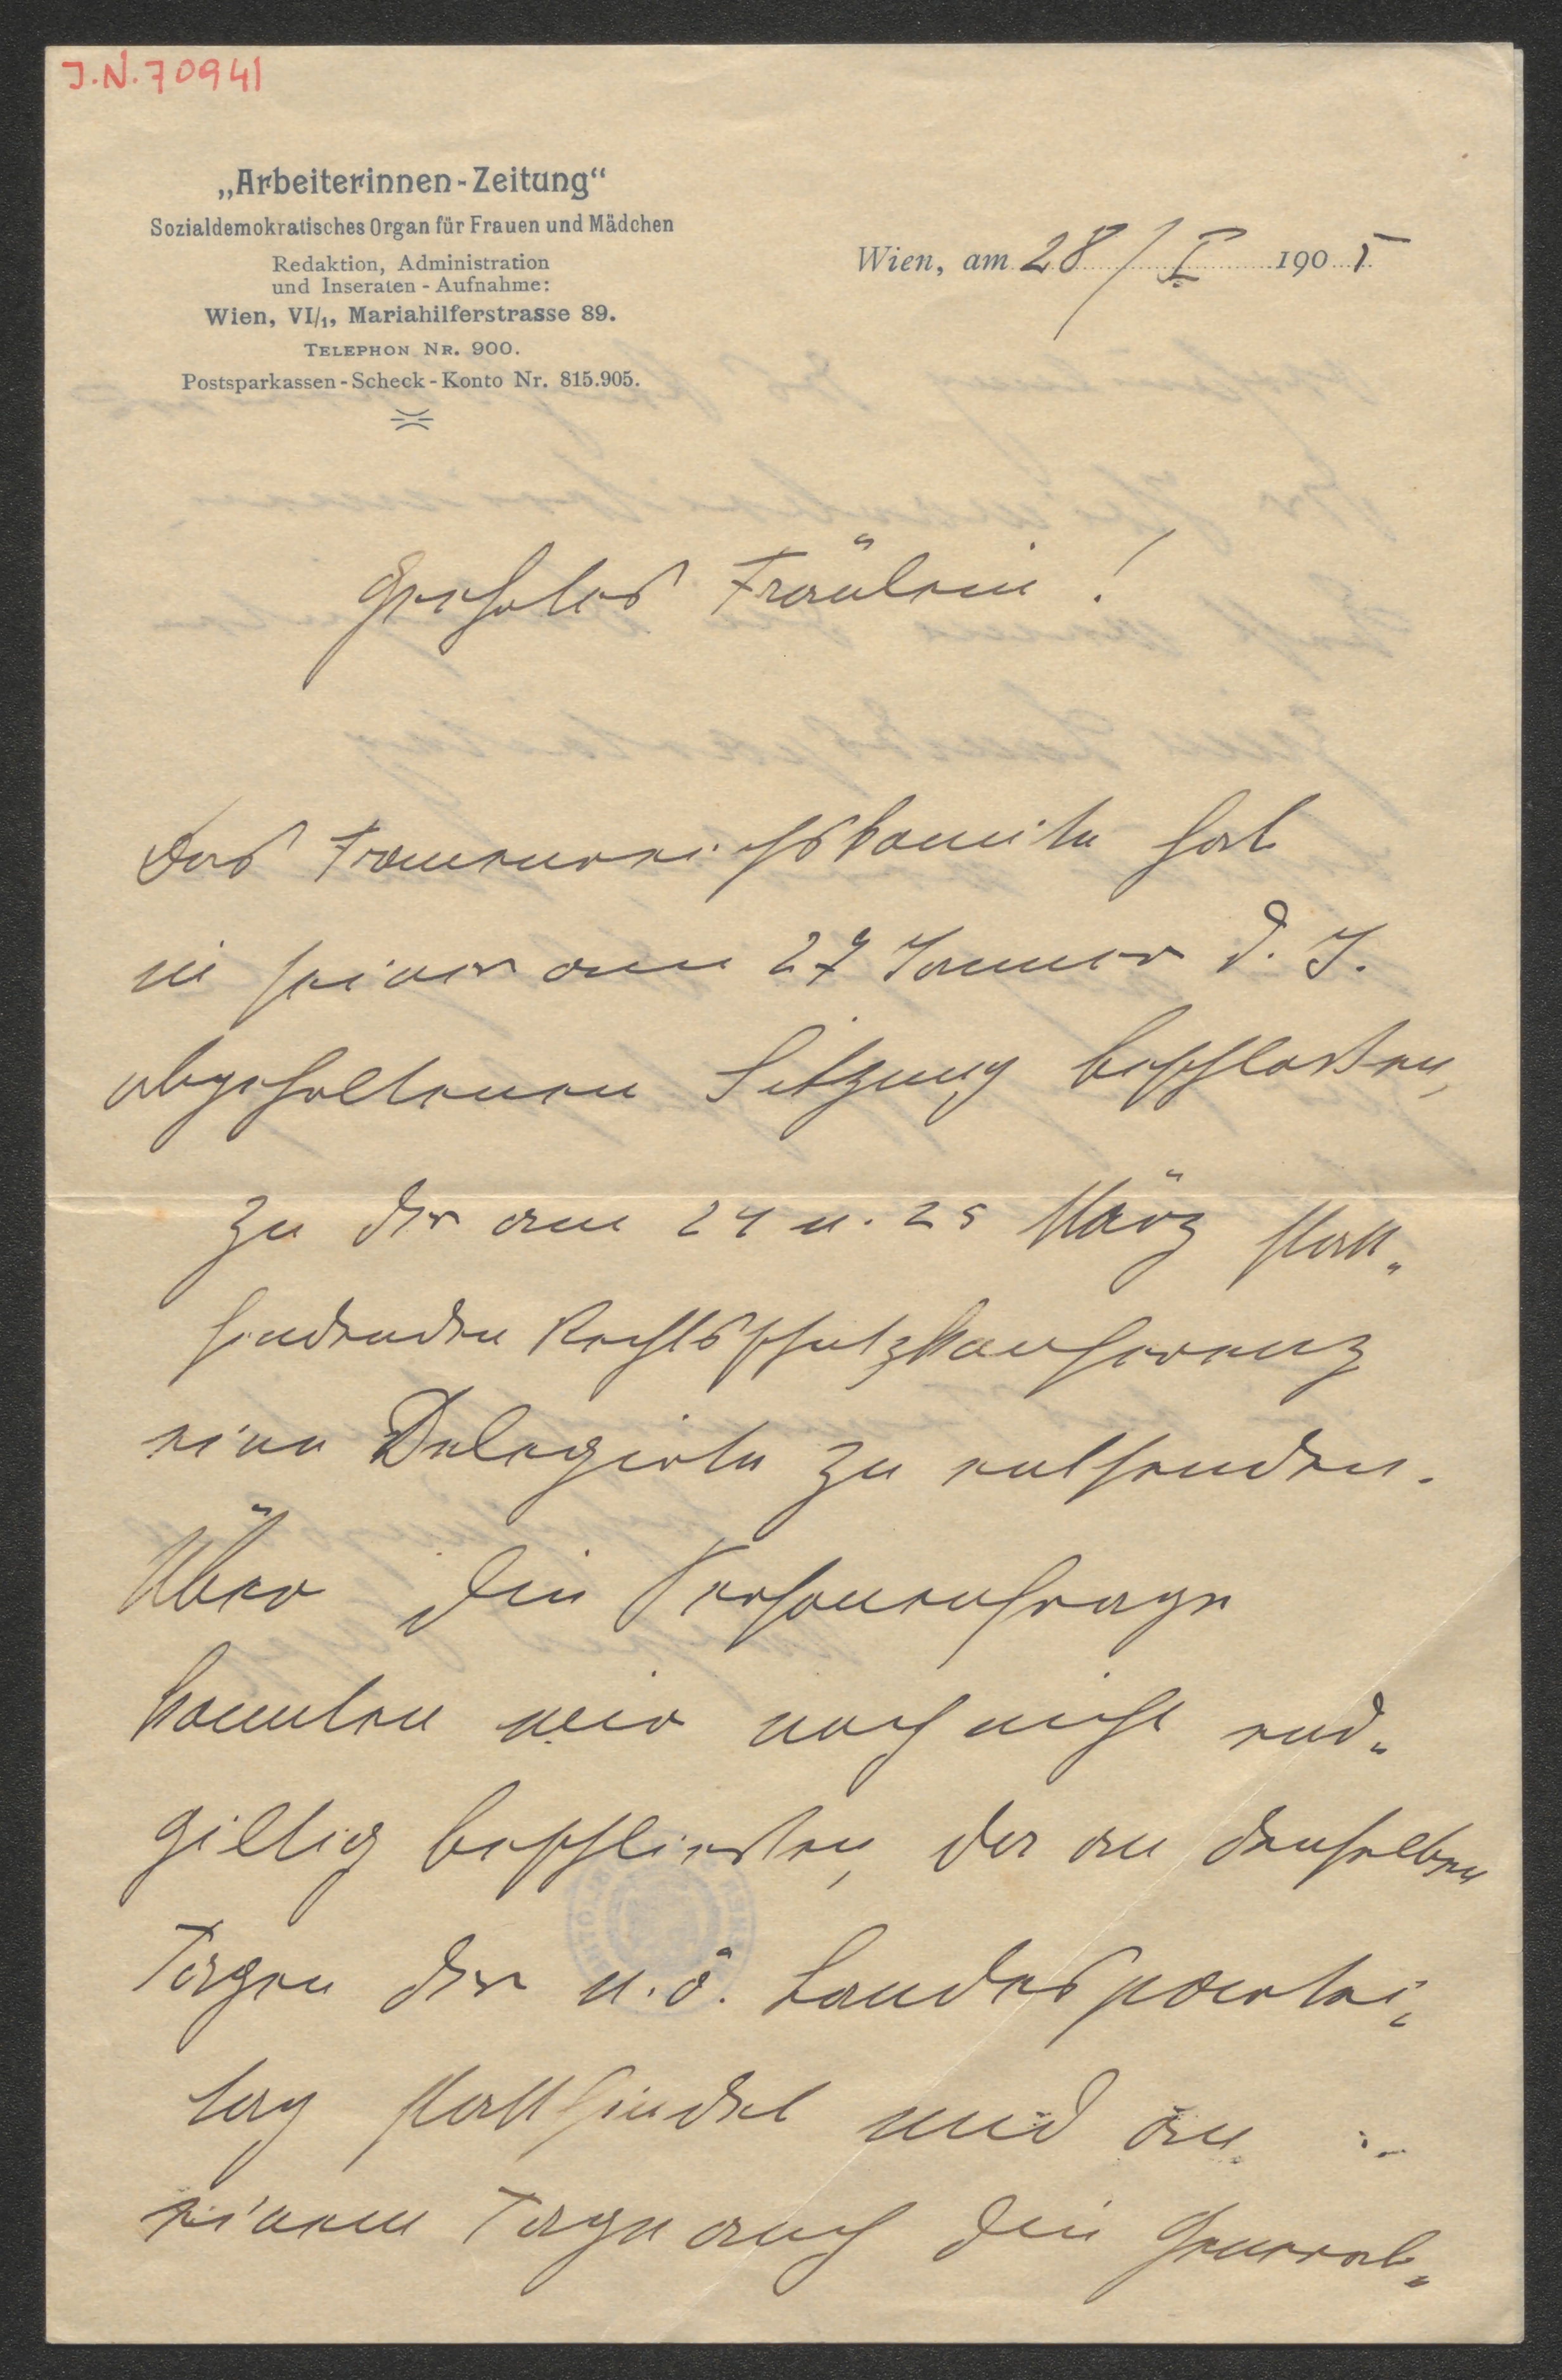 J.N. 70941
„Arbeiterinnen-Zeitung“
Sozialdemokratisches Organ für Frauen und Mädchen
Redaktion, Administration
und Inseraten-Aufnahme:
Wien, VI/1, Mariahilferstrasse 89.
TELEPHON NR. 900.
Postsparkassen-Scheck-Konto Nr. 815.905.
Wien, am 28/I 1905
Geehrtes Fräulein!
Das Frauenreichskomite hat
in seiner am 27 Jänner d. J.
abgehaltenen Sitzung beschloßen,
zu der am 24 u. 25 März statt„
findenden Rechtsschutzkonferenz
eine Delegirte zu entsenden.
Über die Personenfrage
konnten wir noch nicht end„
giltig beschließen, da an denselben
Tagen der n.ö. Landespartei„
tag stattfindet und an
einem Tage auch die General„